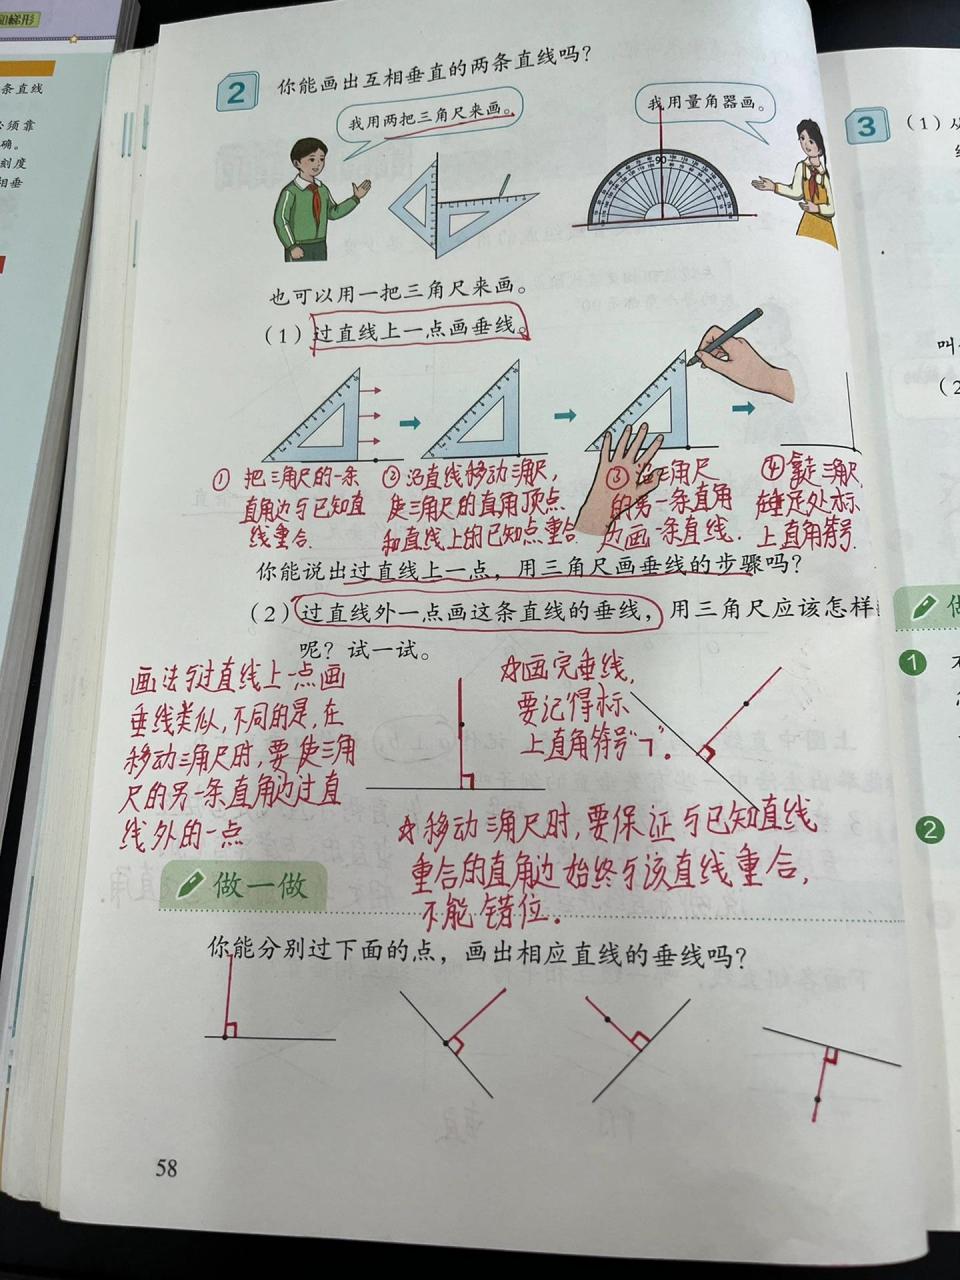 和梯形
条直线
必须靠
确。
刻度
相垂
2
你能画出互相垂直的两条直线吗？
我用两把三角尺来画。
我用量角器画。
也可以用一把三角尺来画。
（1）过直线上一点画垂线。
① 把三角尺的一条
直角边与已知直
线重合.
② 沿直线移动三角尺，
使三角尺的直角顶点
和直线上的已知点重合
③ 沿三角尺
的另一条直角
边画一条直线.
④ 拿走三角尺
在垂足处标
上直角符号.
你能说出过直线上一点，用三角尺画垂线的步骤吗？
（2）过直线外一点画这条直线的垂线，用三角尺应该怎样
呢？试一试。
画法与过直线上一点画
垂线类似，不同的是，在
移动三角尺时，要使三角
尺的另一条直角边过直
线外的一点
☆画完垂线，
要记得标
上直角符号“ㄱ”.
☆移动三角尺时，要保证与已知直线
重合的直角边始终与该直线重合，
不能错位.
做一做
你能分别过下面的点，画出相应直线的垂线吗？
58
3
（1）从
叫
（2
做
1
2